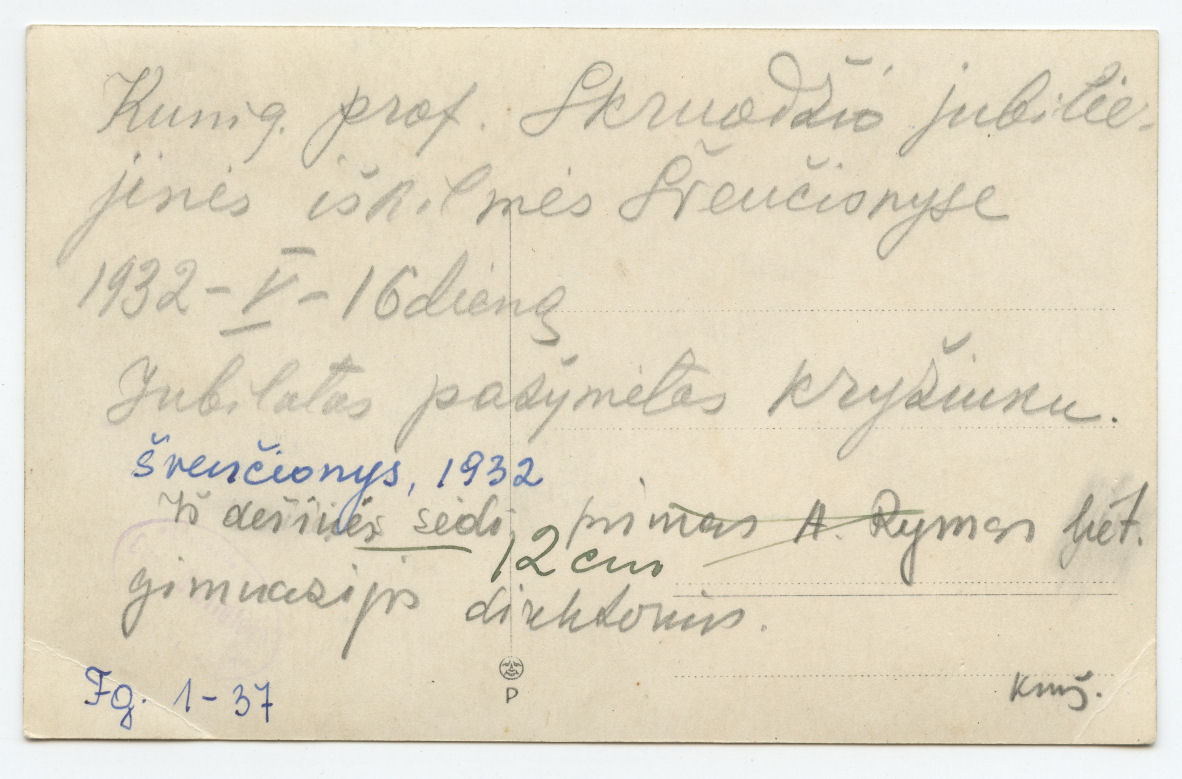 Kunig. prof. Skruodžio jubilie-
jinės iškilmės Švenčionyse
1932-V-16 dieną
Jubilatas pažymėtas kryžiuku.
Švenčionys, 1932
Iš dešinės sėdi pirmas A. Rymas liet.
12 cm
gimnazijis direktorius.
Fg. 1-37
P